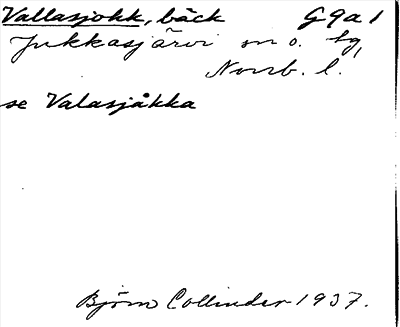 Vallasjokk, bäck G9a1
Jukkasjärvi sn o. tg,
Norrb. l.
se Valasjåkka
Björn Collinder 1937.